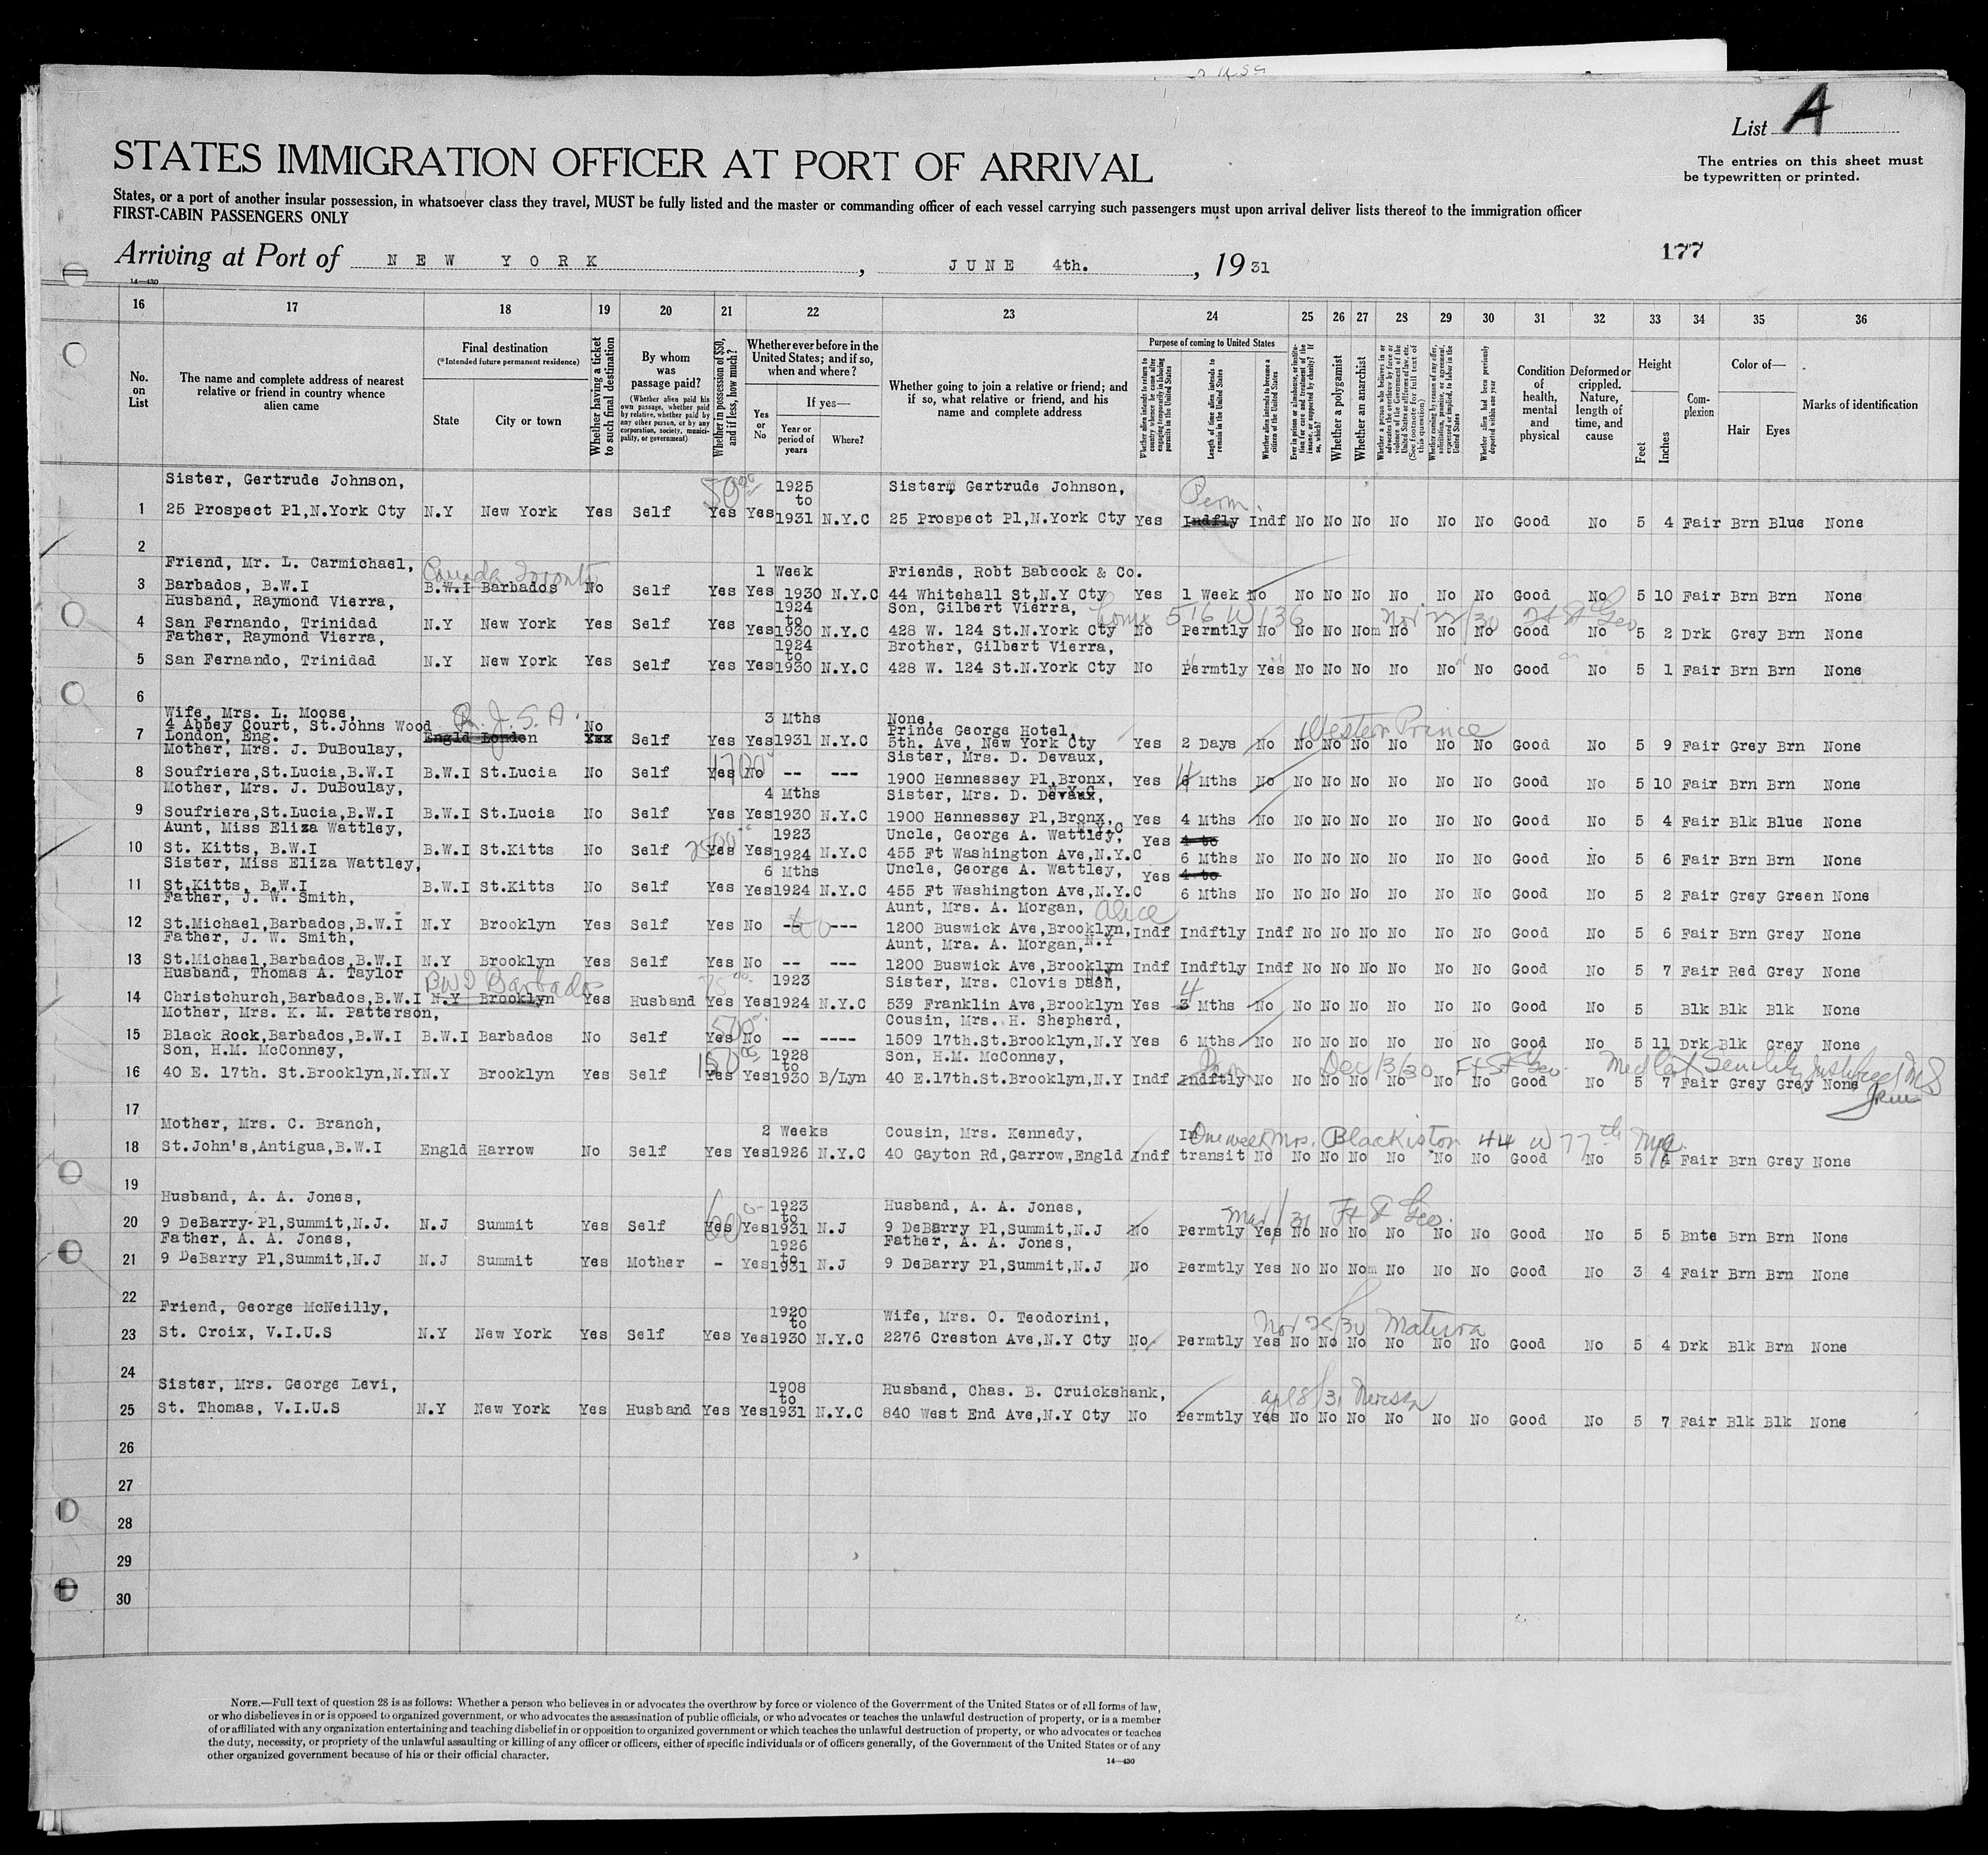 List A
The entries on this sheet must
be typewritten or printed.
STATES IMMIGRATION OFFICER AT PORT OF ARRIVAL
States, or a port of another insular possession, in whatsoever class they travel, MUST be fully listed and the master or commanding officer of each vessel carrying such passengers must upon arrival deliver lists thereof to the immigration officer
FIRST-CABIN PASSENGERS ONLY
177
Arriving at Port of NEW YORK, JUNE 4th., 1931
14—430
16 17 18 19 20 21 22 23 24 25 26 27 28 29 30 31 32 33 34 35 36
No. on List
The name and complete address of nearest relative or friend in country whence alien came
Final destination
(*Intended future permanent residence)
State
City or town
Whether having a ticket to such final destination
By whom was passage paid?
(Whether alien paid his own passage, whether paid by relative, whether paid by any other person, or by any corporation, society, municipality, or government)
Whether in possession of $50, and if less, how much?
Whether ever before in the United States; and if so, when and where?
Yes or No
If yes—
Year or period of years
Where?
Whether going to join a relative or friend; and if so, what relative or friend, and his name and complete address
Purpose of coming to United States
Whether alien intends to return to country whence he came after engaging temporarily in laboring pursuits in the United States
Length of time alien intends to remain in the United States
Whether alien intends to become a citizen of the United States
Ever in prison or almshouse, or institution for care and treatment of the insane, or supported by charity? If so, which?
Whether a polygamist
Whether an anarchist
Whether a person who believes in or advocates the overthrow by force or violence of the Government of the United States or all forms of law, etc. (See footnote for full text of this question)
Whether coming by reason of any offer, solicitation, promise, or agreement, expressed or implied, to labor in the United States
Whether alien had been previously deported within one year
Condition of health, mental and physical
Deformed or crippled. Nature, length of time, and cause
Height
Feet
Inches
Complexion
Color of—
Hair
Eyes
Marks of identification
Sister, Gertrude Johnson, 50 00 1925 to Sister, Gertrude Johnson, Perm.
1 25 Prospect Pl,N.York Cty N.Y New York Yes Self Yes Yes 1931 N.Y.C 25 Prospect Pl,N.York Cty Yes Indfly Indf No No No No No No Good No 5 4 Fair Brn Blue None
2
Friend, Mr. L. Carmichael, Canada Toronto 1 Week Friends, Robt Babcock & Co.
3 Barbados, B.W.I B.W.I Barbados No Self Yes Yes 1930 N.Y.C 44 Whitehall St,N.Y Cty Yes 1 Week No No No No No No No Good No 5 10 Fair Brn Brn None
Husband, Raymond Vierra, 1924 to Son, Gilbert Vierra, home 516 W 136 Nov 22/30 Ft St Geo
4 San Fernando, Trinidad N.Y New York Yes Self Yes Yes 1930 N.Y.C 428 W. 124 St.N.York Cty No Permtly No No No Nom No No No Good No 5 2 Drk Grey Brn None
Father, Raymond Vierra, 1924 to Brother, Gilbert Vierra,
5 San Fernando, Trinidad N.Y New York Yes Self Yes Yes 1930 N.Y.C 428 W. 124 St.N.York Cty No Permtly Yes No No No No No No Good No 5 1 Fair Brn Brn None
6
Wife, Mrs. L. Moose, 3 Mths None,
4 Abbey Court, St.Johns Wood No Prince George Hotel, Western Prince
7 London, Eng. Engld London Yxx Self Yes Yes 1931 N.Y.C 5th. Ave, New York Cty Yes 2 Days No No No No No No No Good No 5 9 Fair Grey Brn None
Mother, Mrs. J. DuBoulay, Sister, Mrs. D. Devaux,
8 Soufriere,St.Lucia,B.W.I B.W.I St.Lucia No Self Yes No -- --- 1900 Hennessey Pl,Bronx, N.Y.C Yes 6 Mths No No No No No No No Good No 5 10 Fair Brn Brn None
Mother, Mrs. J. DuBoulay, 4 Mths Sister, Mrs. D. Devaux,
9 Soufriere,St.Lucia,B.W.I B.W.I St.Lucia No Self Yes Yes 1930 N.Y.C 1900 Hennessey Pl,Bronx, N.Y.C Yes 4 Mths No No No No No No No Good No 5 4 Fair Blk Blue None
Aunt, Miss Eliza Wattley, 1923 Uncle, George A. Wattley, 4 to
10 St. Kitts, B.W.I B.W.I St.Kitts No Self Yes Yes 1924 N.Y.C 455 Ft Washington Ave,N.Y.C Yes 6 Mths No No No No No No No Good No 5 6 Fair Brn Brn None
Sister, Miss Eliza Wattley, 6 Mths Uncle, George A. Wattley, 4 to
11 St.Kitts, B.W.I B.W.I St.Kitts No Self Yes Yes 1924 N.Y.C 455 Ft Washington Ave,N.Y.C Yes 6 Mths No No No No No No No Good No 5 2 Fair Grey Green None
Father, J. W. Smith, Aunt, Mrs. A. Morgan, Alice
12 St.Michael,Barbados,B.W.I N.Y Brooklyn Yes Self Yes No -- --- 1200 Buswick Ave,Brooklyn, N.Y Indf Indftly Indf No No No No No No Good No 5 6 Fair Brn Grey None
Father, J. W. Smith, Aunt, Mra. A. Morgan,
13 St.Michael,Barbados,B.W.I N.Y Brooklyn Yes Self Yes No -- --- 1200 Buswick Ave,Brooklyn N.Y Indf Indftly Indf No No No No No No Good No 5 7 Fair Red Grey None
Husband, Thomas A. Taylor BWI Barbados 75 00 1923 Sister, Mrs. Clovis Dash, 4
14 Christchurch,Barbados,B.W.I N.Y Brooklyn Yes Husband Yes Yes 1924 N.Y.C 539 Franklin Ave,Brooklyn Yes 3 Mths No No No No No No No Good No 5 Blk Blk Blk None
Mother, Mrs. K. M. Patterson, Cousin, Mrs. H. Shepherd,
15 Black Rock,Barbados,B.W.I B.W.I Barbados No Self Yes No -- ---- 1509 17th.St.Brooklyn,N.Y Yes 6 Mths No No No No No No No Good No 5 11 Drk Blk Grey None
Son, H.M. McConney, 150 00 1928 to Son, H.M. McConney, Perm Dec/3/30 Ft St Geo. Med Cert Senility
16 40 E. 17th. St.Brooklyn,N.Y N.Y Brooklyn Yes Self Yes Yes 1930 B/Lyn 40 E.17th.St.Brooklyn,N.Y Indf Indftly No No No No No No No Good No 5 7 Fair Grey Grey None
17
Mother, Mrs. C. Branch, 2 Weeks Cousin, Mrs. Kennedy, In One week Mrs. Blackiston 44 W 77th NYC
18 St.John's,Antigua,B.W.I Engld Harrow No Self Yes Yes 1926 N.Y.C 40 Gayton Rd,Garrow,Engld Indf transit No No No No No No No Good No 5 4 Fair Brn Grey None
19
Husband, A. A. Jones, 1923 to Husband, A. A. Jones, Mar/31 Ft St Geo.
20 9 DeBarry Pl,Summit,N.J. N.J Summit Yes Self Yes Yes 1931 N.J 9 DeBarry Pl,Summit,N.J No Permtly Yes No No No No No No Good No 5 5 Bnte Brn Brn None
Father, A. A. Jones, 1926 to Father, A. A. Jones,
21 9 DeBarry Pl,Summit,N.J N.J Summit Yes Mother - Yes 1931 N.J 9 DeBarry Pl,Summit,N.J No Permtly Yes No No Nom No No No Good No 3 4 Fair Brn Brn None
22
Friend, George McNeilly, 1920 to Wife, Mrs. O. Teodorini, Nov 25/30 Matura
23 St. Croix, V.I.U.S N.Y New York Yes Self Yes Yes 1930 N.Y.C 2276 Creston Ave,N.Y Cty No Permtly Yes No No No No No No Good No 5 4 Drk Blk Brn None
24
Sister, Mrs. George Levi, 1908 to Husband, Chas. B. Cruickshank, Apl 8/31 Nerissa
25 St. Thomas, V.I.U.S N.Y New York Yes Husband Yes Yes 1931 N.Y.C 840 West End Ave,N.Y Cty No Permtly Yes No No No No No No Good No 5 7 Fair Blk Blk None
26
27
28
29
30
NOTE.—Full text of question 28 is as follows: Whether a person who believes in or advocates the overthrow by force or violence of the Government of the United States or of all forms of law,
or who disbelieves in or is opposed to organized government, or who advocates the assassination of public officials, or who advocates or teaches the unlawful destruction of property, or is a member
of or affiliated with any organization entertaining and teaching disbelief in or opposition to organized government or which teaches the unlawful destruction of property, or who advocates or teaches
the duty, necessity, or propriety of the unlawful assaulting or killing of any officer or officers, either of specific individuals or of officers generally, of the Government of the United States or of any
other organized government because of his or their official character.
14—430